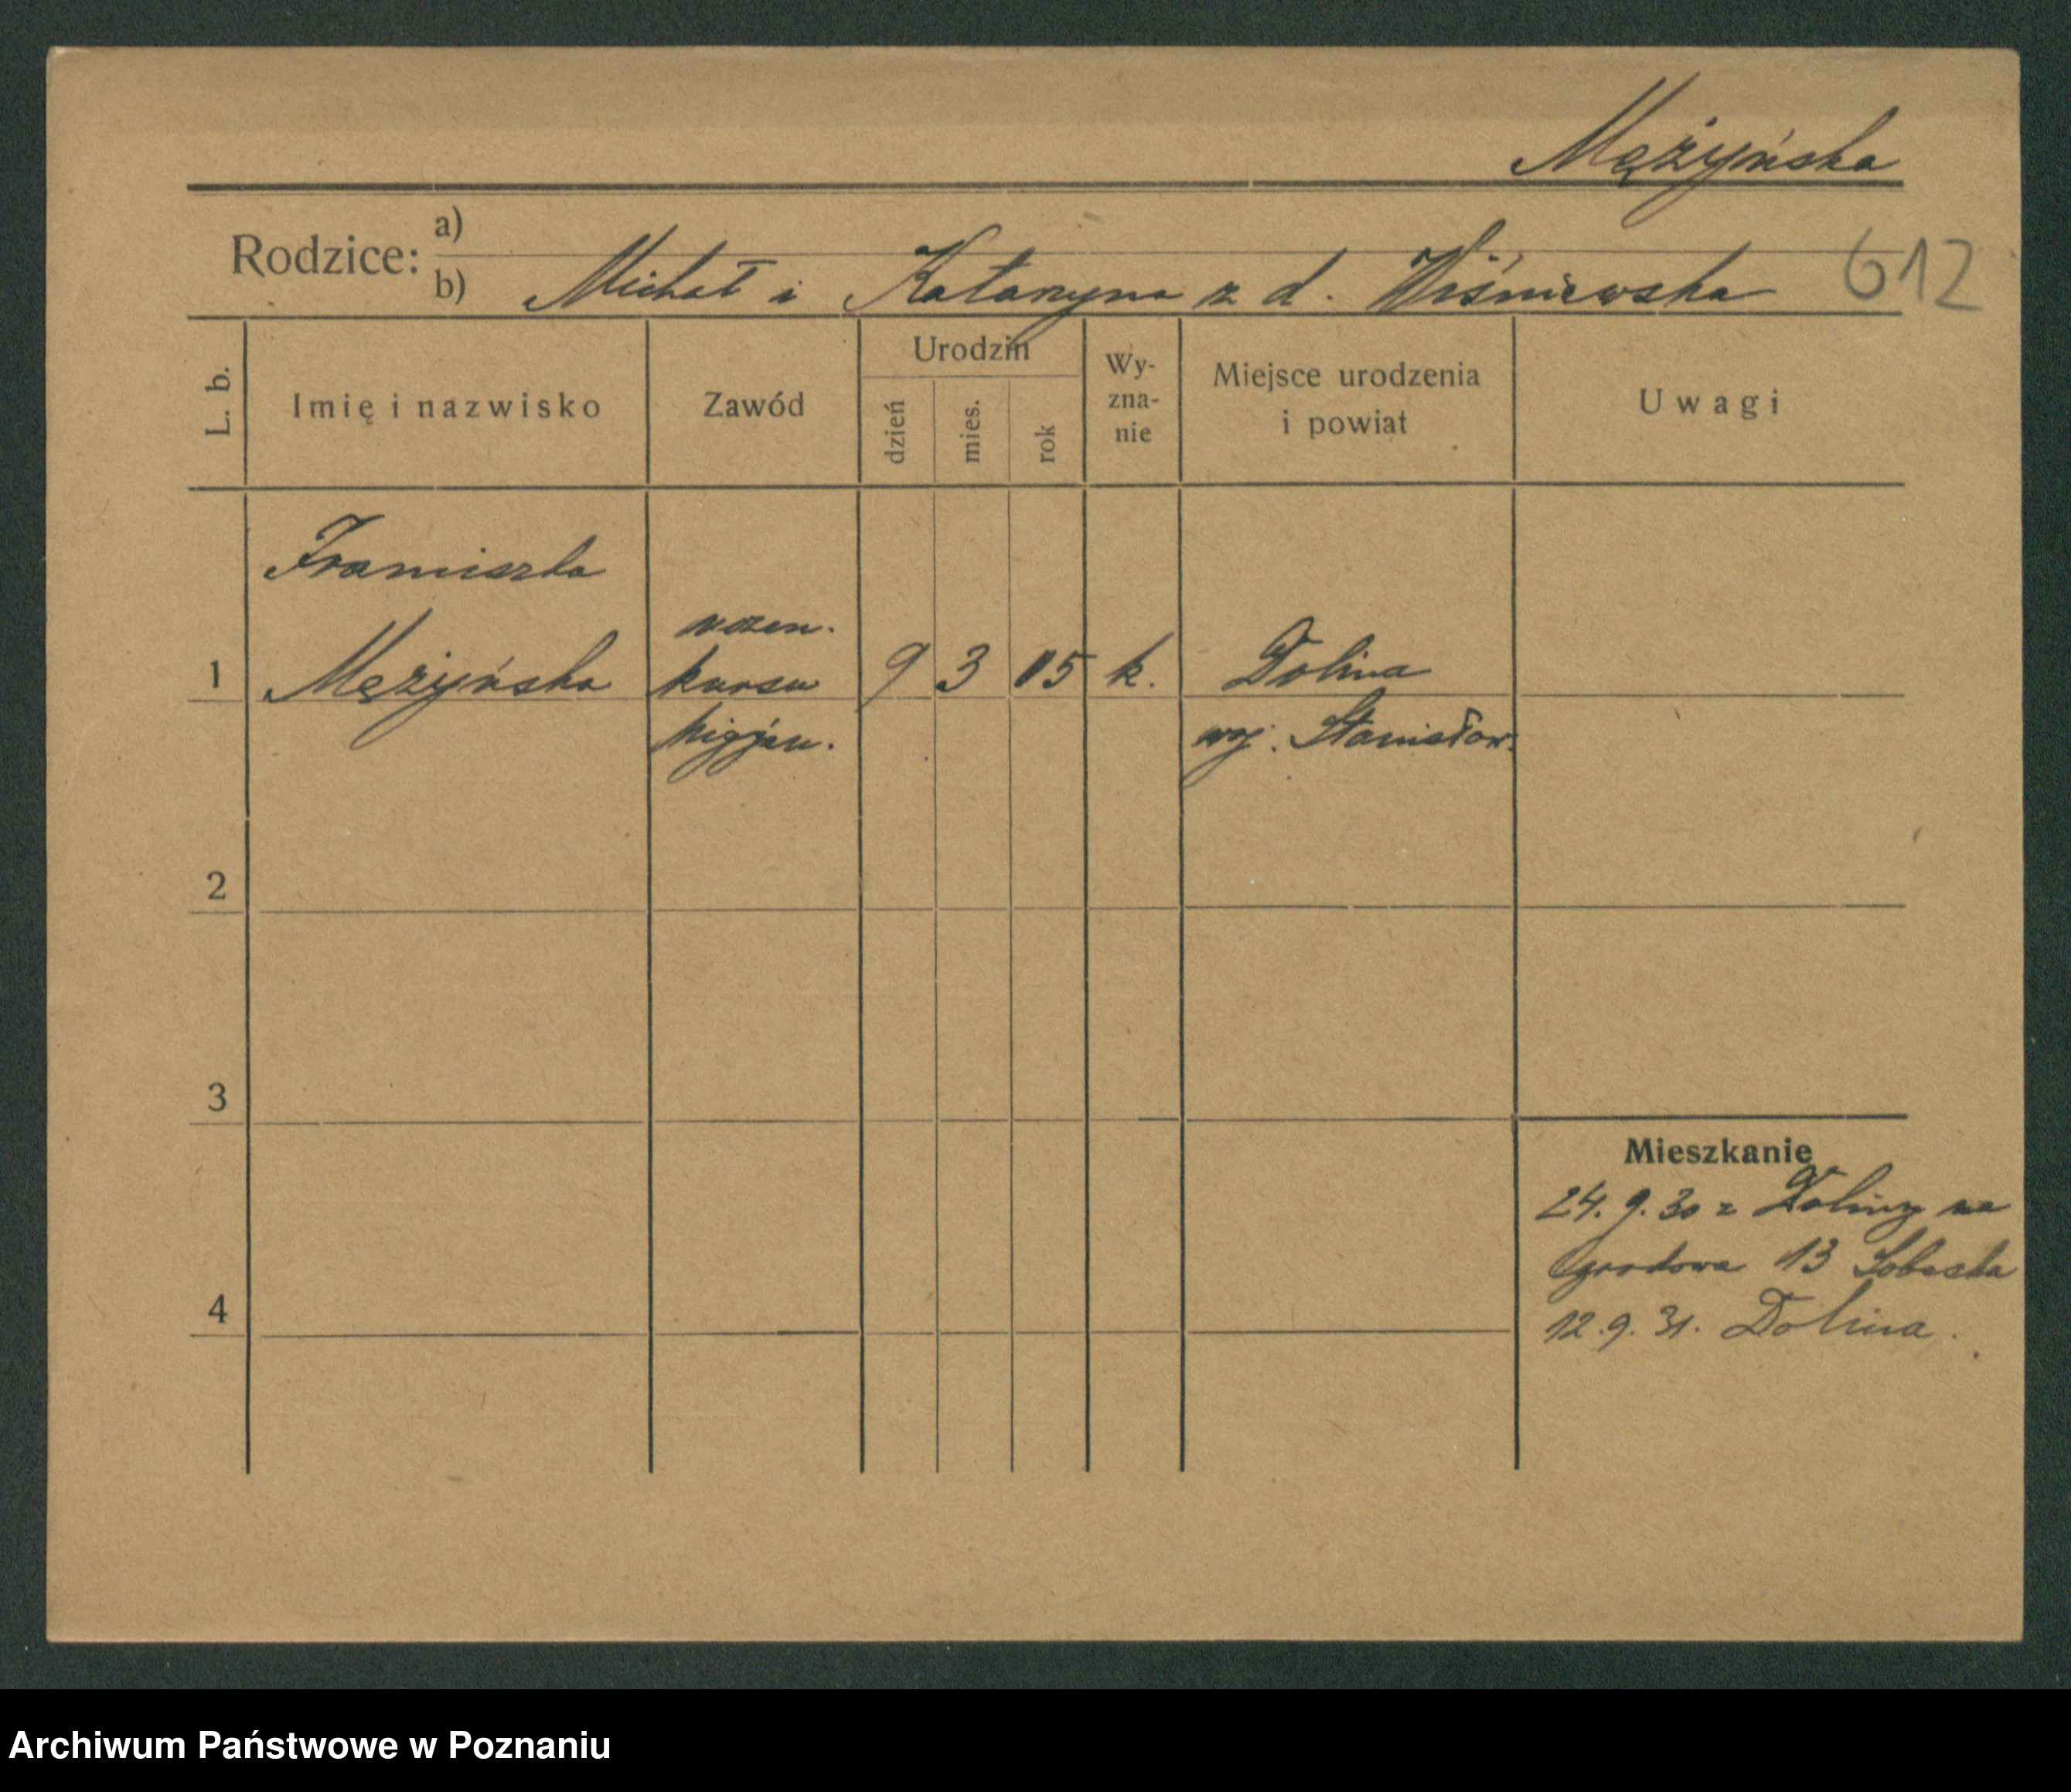 Mężyńska
Rodzice: a)
b) Michał i Katarzyna z d. Wiśniewska 612
L. b. Imię i nazwisko Zawód Urodzin dzień mies. rok Wy-zna-nie Miejsce urodzenia i powiat Uwagi
Franciszka
uczen.
1 Mężyńska kursu 9 3 05 k. Dolina
higjen. woj. Stanisław.
2
3
Mieszkanie
24. 9. 30 z Doliny na
Ogrodowa 13
4 12. 9. 31. Dolina.
Archiwum Państwowe w Poznaniu